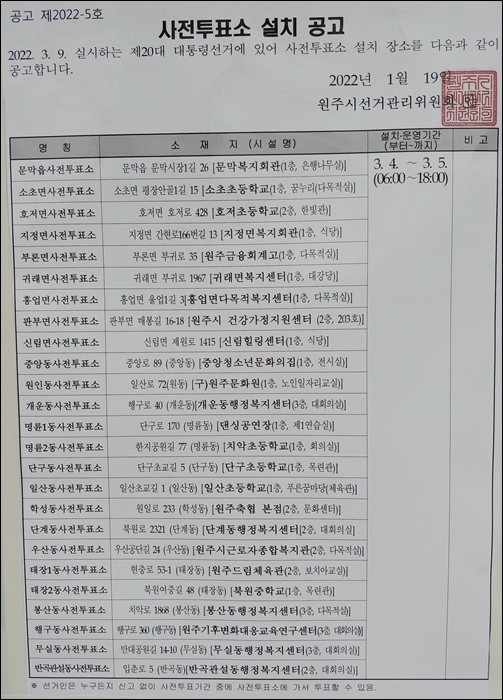 공고 제2022-5호
사전투표소 설치 공고
2022. 3. 9. 실시하는 제20대 대통령선거에 있어 사전투표소 설치 장소를 다음과 같이
공고합니다.
2022년 1월 19일
원주시선거관리위원회
명 칭 소 재 지 (시 설 명) 설치·운영기간 (부터~까지) 비 고
문막읍사전투표소 문막읍 문막시장1길 26 [문막복지회관(1층, 은행나무실)] 3. 4. ~ 3. 5.
소초면사전투표소 소초면 평장안골1길 15 [소초초등학교(1층, 꿈누리(다목적실)] (06:00~18:00)
호저면사전투표소 호저면 호저로 428 [호저초등학교(2층, 한빛관)]
지정면사전투표소 지정면 간현로166번길 13 [지정면복지회관(1층, 식당)]
부론면사전투표소 부론면 부귀로 35 [원주금융회계고(1층, 다목적실)]
귀래면사전투표소 귀래면 부귀로 1967 [귀래면복지센터(1층, 대강당)]
흥업면사전투표소 흥업면 울업1길 3[흥업면다목적복지센터(1층, 다목적실)]
판부면사전투표소 판부면 매봉길 16-18 [원주시 건강가정지원센터 (2층, 203호)]
신림면사전투표소 신림면 제원로 1415 [신림힐링센터(1층, 식당)]
중앙동사전투표소 중앙로 89 (중앙동) [중앙청소년문화의집(1층, 전시실)]
원인동사전투표소 일산로 72(원동) [구)원주문화원(1층, 노인일자리교실)]
개운동사전투표소 행구로 40 (개운동)[개운동행정복지센터(3층, 대회의실)]
명륜1동사전투표소 단구로 170 (명륜동) [댄싱공연장(1층, 제1연습실)]
명륜2동사전투표소 한지공원길 77 (명륜동) [치악초등학교(1층, 회의실)]
단구동사전투표소 단구초교길 5 (단구동) [단구초등학교(1층, 목련관)]
일산동사전투표소 일산초교길 1 (일산동) [일산초등학교(1층, 푸른꿈마당(체육관)]
학성동사전투표소 원일로 233 (학성동) [원주축협 본점(2층, 문화센터)]
단계동사전투표소 북원로 2321 (단계동) [단계동행정복지센터(2층, 대회의실)]
우산동사전투표소 우산공단길 24 (우산동) [원주시근로자종합복지관(2층, 다목적실)]
태장1동사전투표소 현충로 53-1 (태장동) [원주드림체육관(2층, 보치아교실)]
태장2동사전투표소 북원여중길 48 (태장동) [북원중학교(1층, 목련관)]
봉산동사전투표소 치악로 1868 (봉산동) [봉산동행정복지센터(3층, 다목적실)]
행구동사전투표소 행구로 360 (행구동) [원주기후변화대응교육연구센터(3층, 대회의실)]
무실동사전투표소 만대공원길 14-10 (무실동) [무실동행정복지센터(3층, 대회의실)]
반곡관설동사전투표소 입춘로 5 (반곡동) [반곡관설동행정복지센터(2층, 대회의실)]
※ 선거인은 누구든지 신고 없이 사전투표기간 중에 사전투표소에 가서 투표할 수 있음.